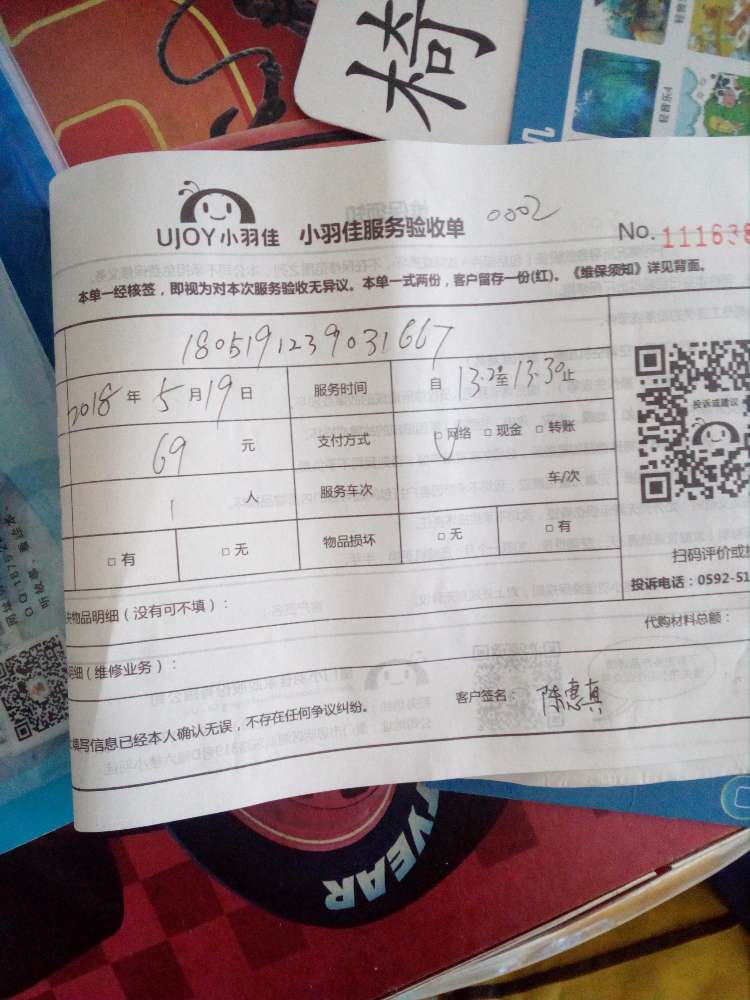 椅
轻音乐4
UJOY小羽佳 小羽佳服务验收单 0002 No. 111638
本单一经核签，即视为对本次服务验收无异议。本单一式两份，客户留存一份(红)。《维保须知》详见背面。
1805191239031667
2018年5月19日 服务时间 自13:2至13:30止
69 元 支付方式 □网络 □现金 □转账
1 人 服务车次 车/次
□有 □无 物品损坏 □无 □有
投诉或建议
扫码评价或
投诉电话：0592-51
物品明细（没有可不填）：
代购材料总额：
明细（维修业务）：
客户签名： 陈惠真
填写信息已经本人确认无误，不存在任何争议纠纷。
YEAR